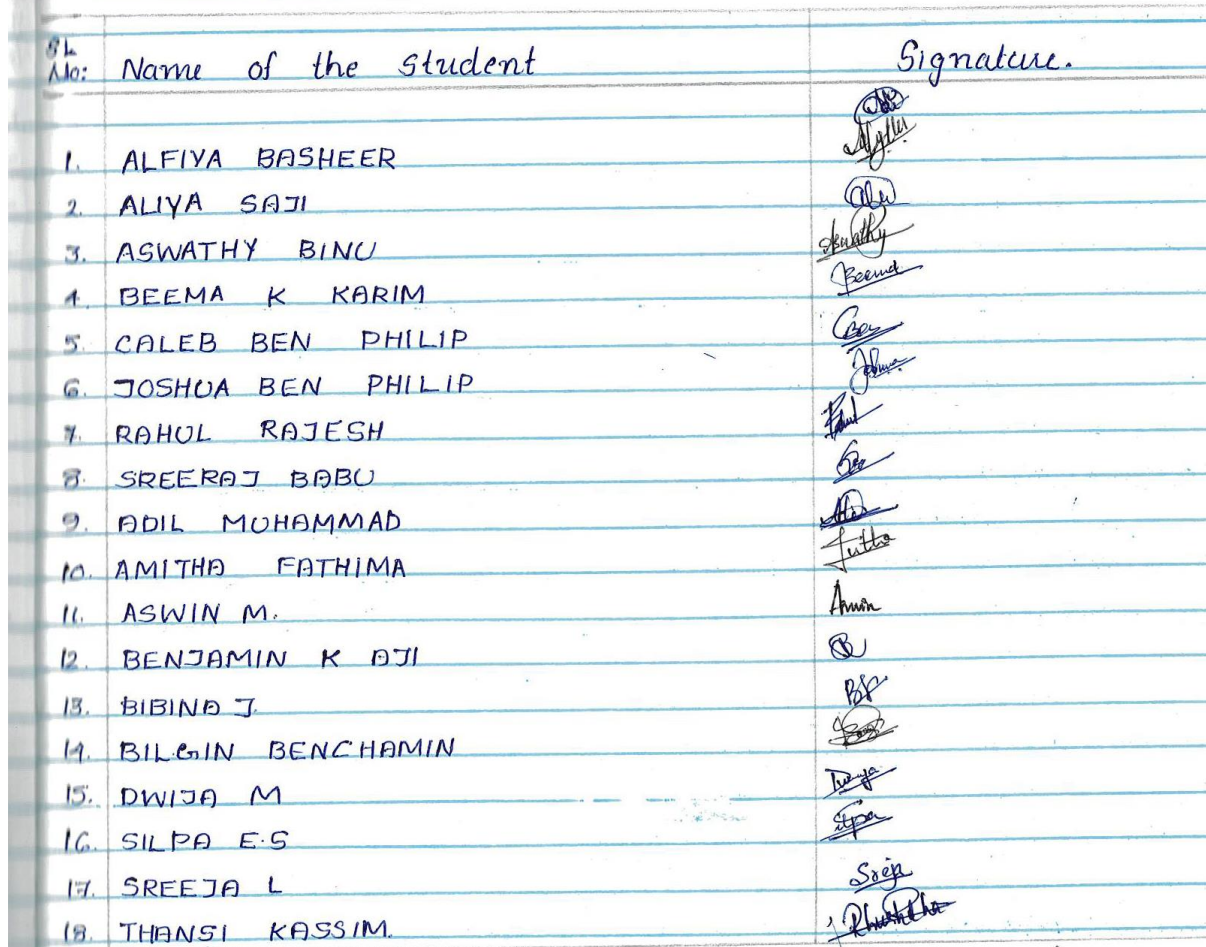 SL No: Name of the Student Signature.
1. ALFIYA BASHEER
2. ALIYA SAJI
3. ASWATHY BINU Aswathy
4. BEEMA K KARIM Beema
5. CALEB BEN PHILIP
6. JOSHUA BEN PHILIP Joshua
7. RAHUL RAJESH Rahul
8. SREERAJ BABU
9. ADIL MUHAMMAD
10. AMITHA FATHIMA
11. ASWIN M. Aswin
12. BENJAMIN K AJI
13. BIBINA J.
14. BILGIN BENCHAMIN
15. DWIJA M
16. SILPA E.S Silpa
17. SREEJA L Sreeja
18. THANSI KASSIM.